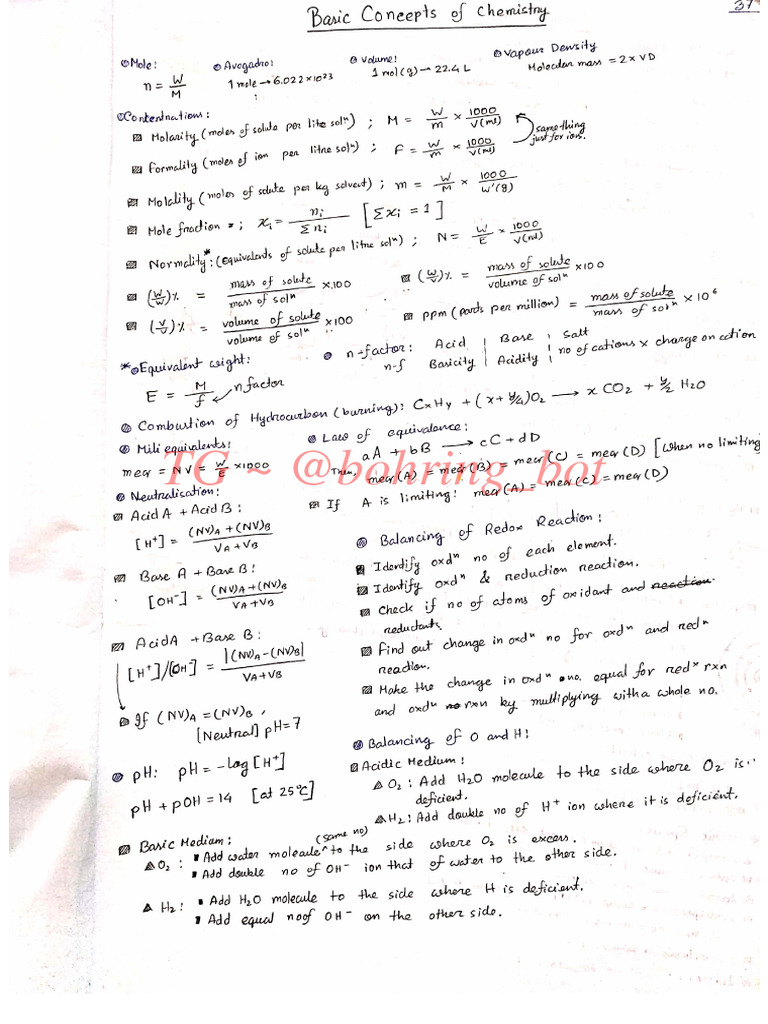 Basic Concepts of Chemistry
37
Mole: n = W/M
Avogadro: 1 mole → 6.022×10²³
Volume: 1 mol (g) → 22.4 L
Vapour Density
Molecular mass = 2 × VD
Contentration:
Molarity (moles of solute per litre solⁿ) ; M = W/m × 1000/V(ml)
Formality (moles of ion per litre solⁿ) ; F = W/m × 1000/V(ml)
same thing just for ions.
Molality (moles of solute per kg solvent) ; m = W/M × 1000/W'(g)
Mole fraction ; xᵢ = nᵢ/Σnᵢ [Σxᵢ = 1]
Normality*: (Equivalents of solute per litre solⁿ) ; N = W/E × 1000/V(ml)
(w/w)% = mass of solute/mass of solⁿ ×100
(w/v)% = mass of solute/volume of solⁿ ×100
(v/v)% = volume of solute/volume of solⁿ ×100
ppm (parts per million) = mass of solute/mass of solⁿ × 10⁶
*Equivalent weight:
E = M/f ← n factor
n-factor: Acid | Base | Salt
n-f Basicity | Acidity | no of cations × charge on cation
Combustion of Hydrocarbon (burning): CxHy + (x + y/4)O₂ → x CO₂ + y/2 H₂O
Mili equivalents:
meq = NV = W/E ×1000
Law of equivalence:
aA + bB → cC + dD
Then, meq(A) = meq(B) = meq(C) = meq(D) [When no limiting
If A is limiting! meq(A) = meq(C) = meq(D)
TG ~ @bohring_bot
Neutralisation:
Acid A + Acid B:
[H⁺] = (NV)A + (NV)B / VA + VB
Base A + Base B:
[OH⁻] = (NV)A + (NV)B / VA + VB
Acid A + Base B:
[H⁺]/[OH] = |(NV)A − (NV)B| / VA + VB
If (NV)A = (NV)B,
[Neutral] pH = 7
pH: pH = −log[H⁺]
pH + pOH = 14 [at 25°C]
Balancing of Redox Reaction:
Identify oxdⁿ no of each element.
Identify oxdⁿ & reduction reaction.
Check if no of atoms of oxidant and reaction
reductants.
Find out change in oxdⁿ no for oxdⁿ and redⁿ
reaction.
Make the change in oxdⁿ no. equal for redⁿ rxn
and oxdⁿ rxn by multiplying with a whole no.
Balancing of O and H:
Acidic Medium:
O₂: Add H₂O molecule to the side where O₂ is
deficient.
H₂: Add double no of H⁺ ion where it is deficient.
Basic Medium:
O₂: Add water molecule (same no) to the side where O₂ is excess.
Add double no of OH⁻ ion that of water to the other side.
H₂: Add H₂O molecule to the side where H is deficient.
Add equal no of OH⁻ on the other side.